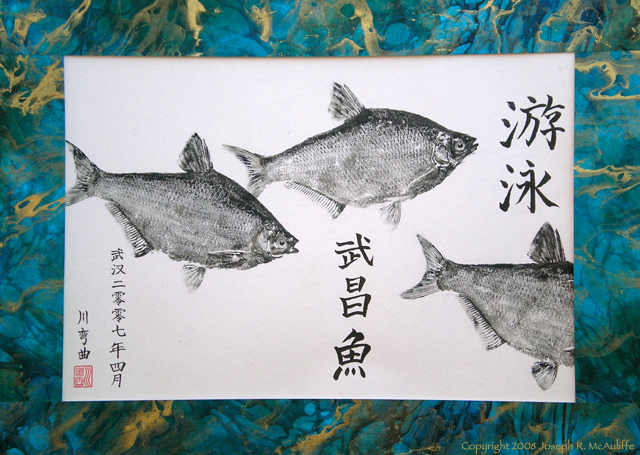 游泳
武昌魚
武汉二零零七年四月
川弯曲
Copyright 2008 Joseph R. McAuliffe